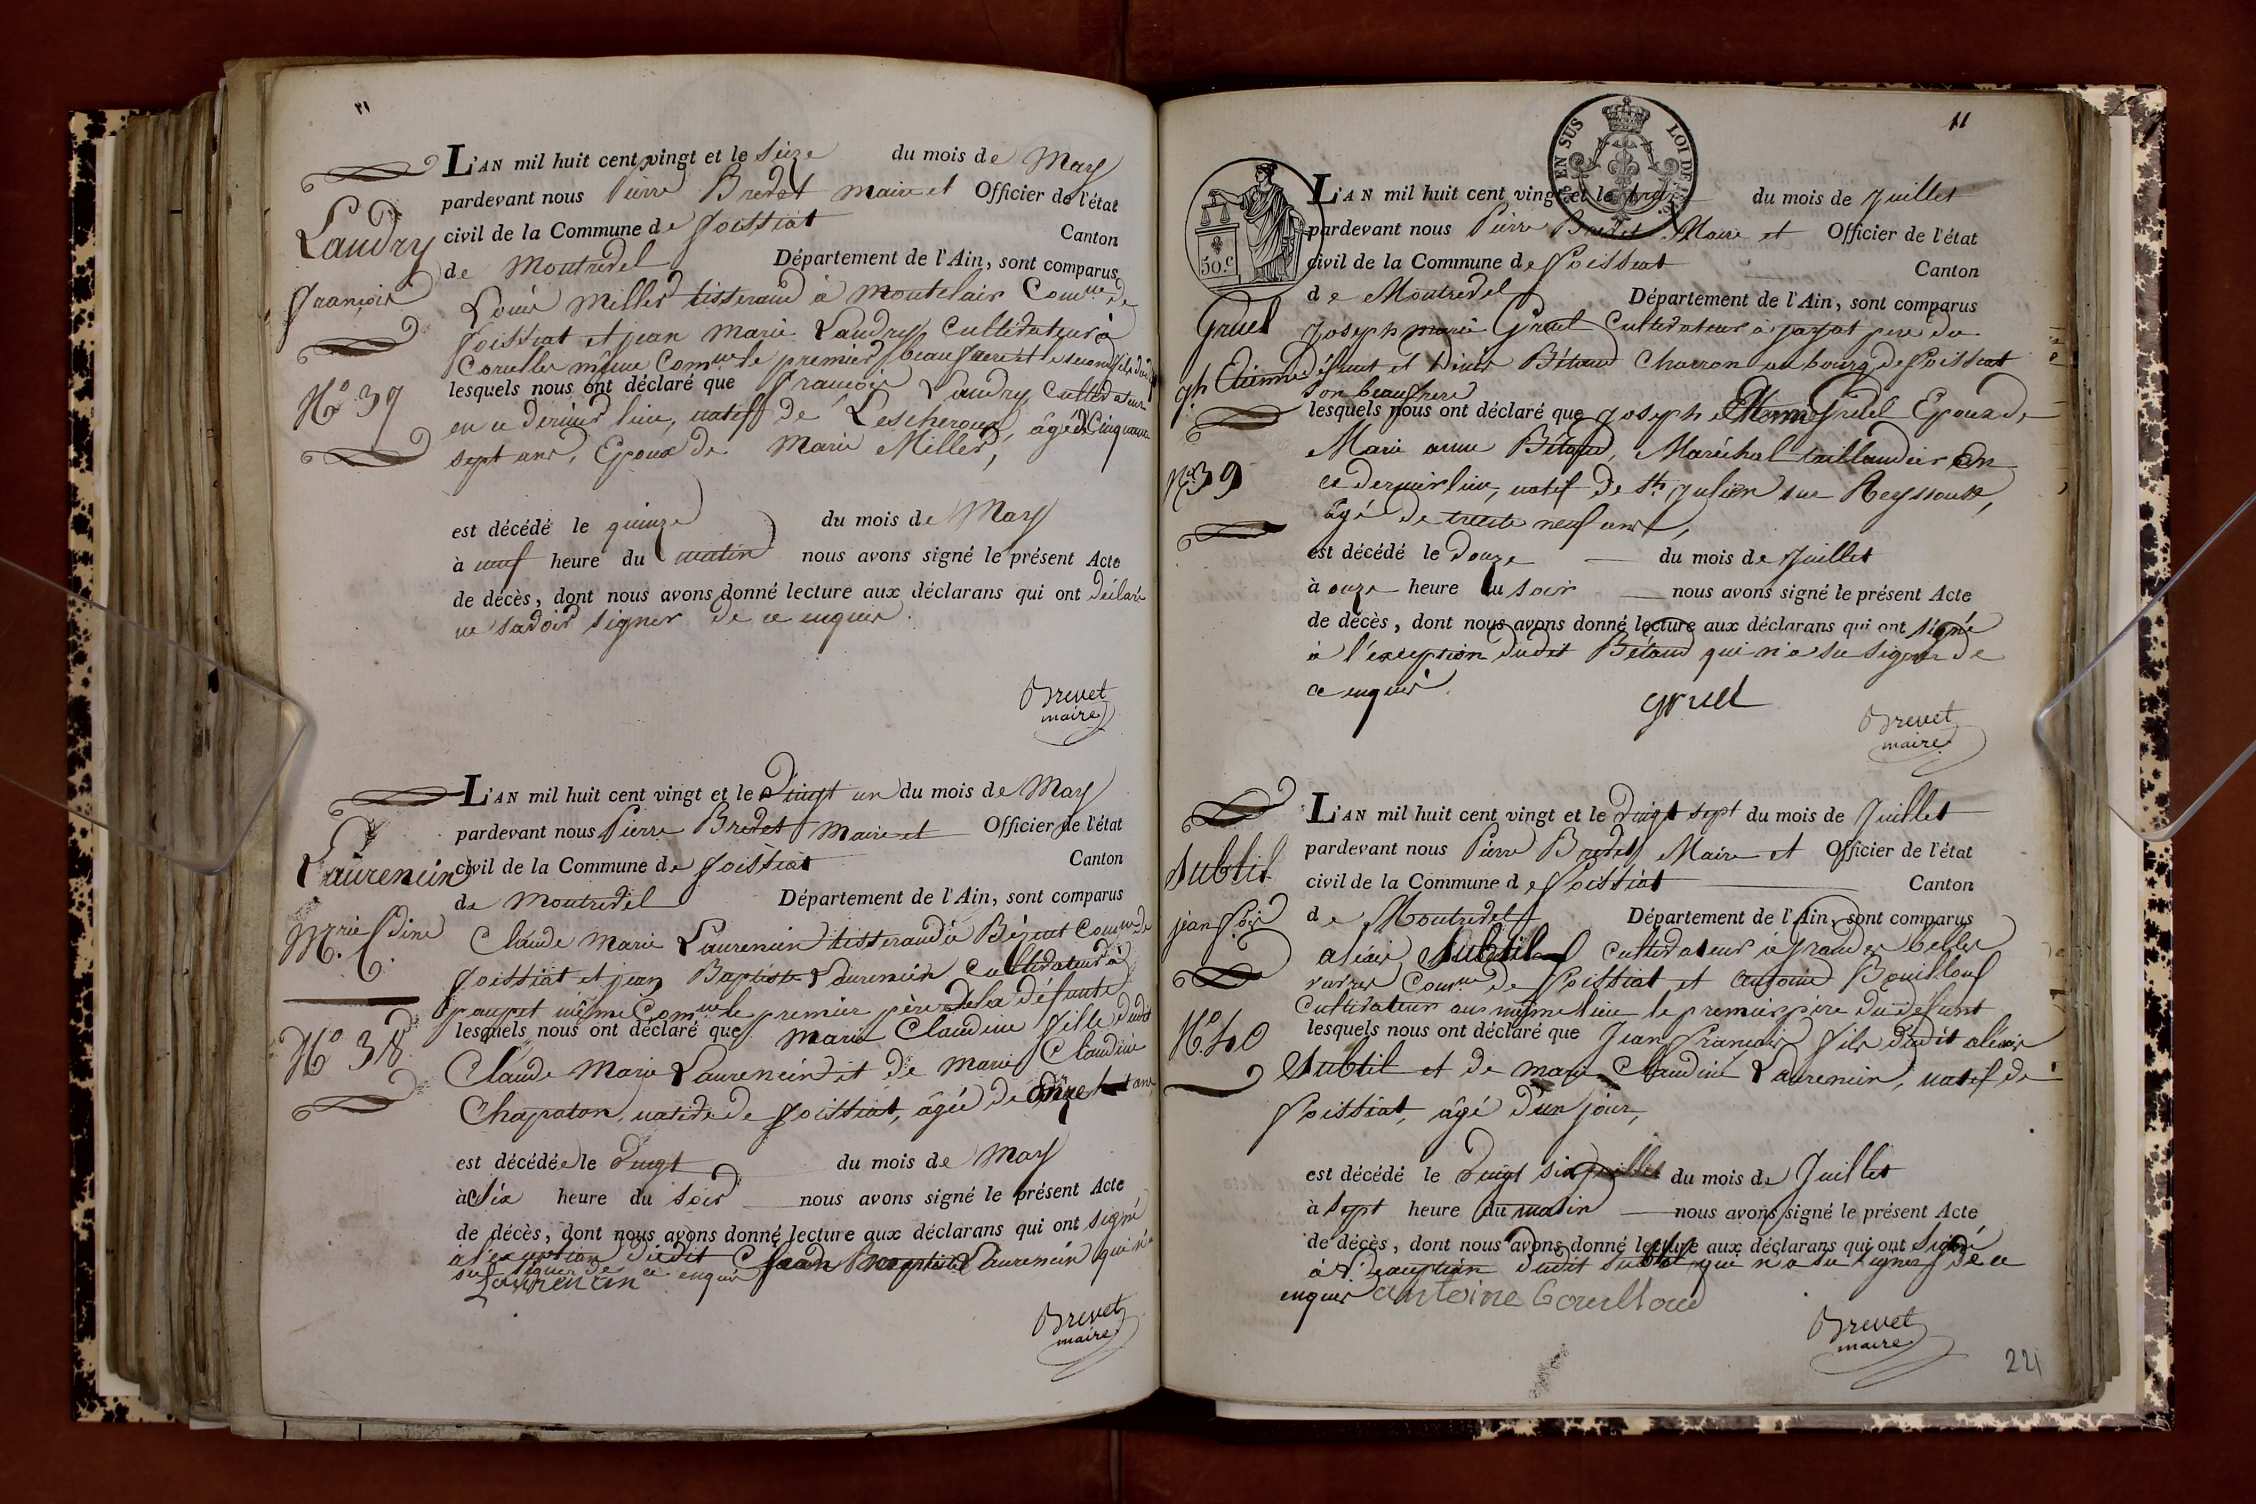 11
L'AN mil huit cent vingt et le seize du mois de May
pardevant nous Pierre Brevet maire et Officier de l'état
civil de la Commune de foissiat
Canton
de Montrevel Département de l'Ain, sont comparus
Landry
françois
N.º 37
Louis Millet tisserand à montclair Com.ne de
foissiat et jean marie Landry cultivateur à
Coruelles même Com.ne le premier beaufrere et le second fils du
lesquels nous ont déclaré que françois Landry cultivateur
en ce dernier lieu, natif de Lescheroux, âgé de Cinquante
sept ans, Epoux de Marie Millet,
est décédé le quinze du mois de May
à neuf heure du matin nous avons signé le présent Acte
de décès, dont nous avons donné lecture aux déclarans qui ont déclaré
ne savoir signer de ce enquis.
Brevet
maire
L'AN mil huit cent vingt et le vingt un du mois de May
pardevant nous Pierre Brevet maire et Officier de l'état
civil de la Commune de foissiat
Canton
de montrevel Département de l'Ain, sont comparus
Laurencin
M.rie C.dine
N.º 38
Claude Marie Laurencin tisserand à Bézent Com.ne de
foissiat et jean Baptiste Laurencin cultivateur à
paupet même Com.ne le premier père de la défunte
lesquels nous ont déclaré que marie Claudine fille dudit
Claude Marie Laurencin et de marie Claudine
Chapaton, native de foissiat, âgée de onze ans
est décédée le vingt du mois de May
à six heure du soir nous avons signé le présent Acte
de décès, dont nous avons donné lecture aux déclarans qui ont signé
a l'exception dudit jean Baptiste Laurencin qui n'a
su signer de ce enquis
Laurencin
Brevet
maire
11
EN SUS
LOI DE
50.c
L'AN mil huit cent vingt et le du mois de Juillet
pardevant nous Pierre Brevet Maire et Officier de l'état
civil de la Commune de foissiat
Canton
de Montrevel Département de l'Ain, sont comparus
Gruel
ph Etienne
N.º 39
Joseph marie Gruel Cultivateur à jayat pere du
défunt et Denis Bétaud Charron au bourg de foissiat
son beaufrere
lesquels nous ont déclaré que Joseph Etienne Gruel Epoux de
Marie anne Bétaud, Maréchal taillandier en
ce dernier lieu, natif de St. Julien sur Reyssouze,
âgé de trente neuf ans,
est décédé le Douze du mois de Juillet
à onze heure du soir nous avons signé le présent Acte
de décès, dont nous avons donné lecture aux déclarans qui ont signé
à l'exception dudit Bétaud qui n'a su signer de
ce enquis.
gruel
Brevet
maire
L'AN mil huit cent vingt et le vingt sept du mois de Juillet
pardevant nous Pierre Brevet Maire et Officier de l'état
civil de la Commune de foissiat
Canton
de Montrevel Département de l'Ain, sont comparus
Subtil
jean f.ois
N.º 40
aléxis Subtil cultivateur à grandes belles
vavres Com.ne de foissiat et antoine Bouilloud
cultivateur au même lieu le premier père du defunt
lesquels nous ont déclaré que Jean françois fils dudit aléxis
Subtil et de marie Claudine Laurencin, natif de
foissiat, âgé d'un jour,
est décédé le vingt six du mois de Juillet
à sept heure du matin nous avons signé le présent Acte
de décès, dont nous avons donné lecture aux déclarans qui ont signé
à l'exception dudit Subtil qui n'a su signer de ce
enquis antoine bouilloud
Brevet
maire
221